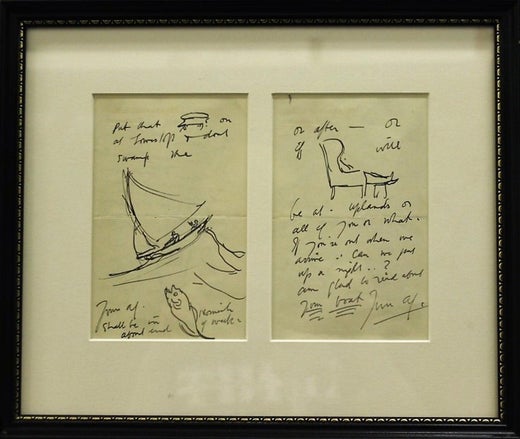 Put that on
at & don't
swamp the
Yours af.
shall be in
about end
of week =
or after — or
if will
be at Uplands or
all of you or what.
If you're out when we
arrive .. Can we put
up a night ..?
am glad to read about
your boat Yours af.